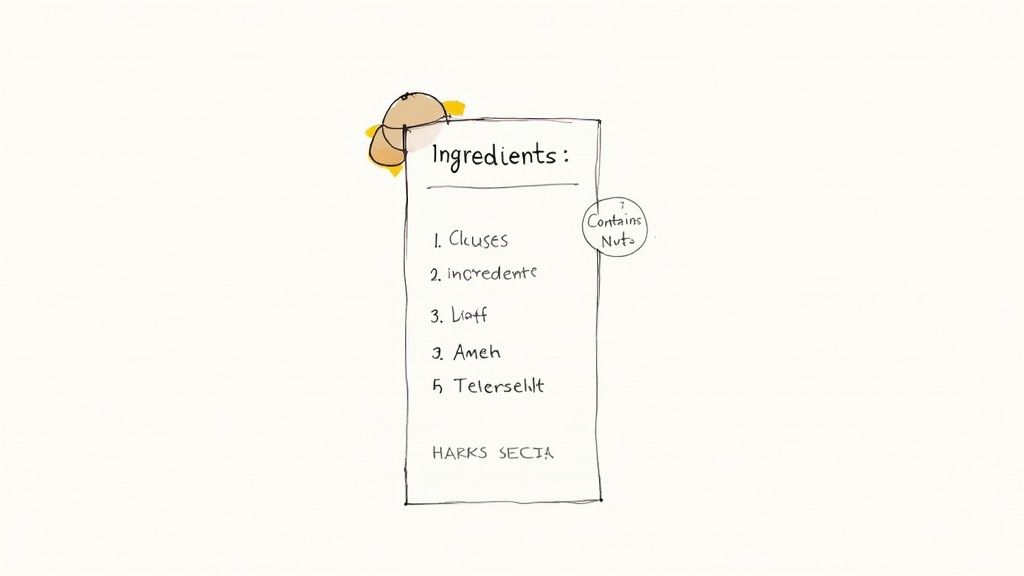 Ingredients:
Contains
Nuts
1. Clcuses
2. incredente
3.
3. Ameh
5 Telerselilt
HARKS SECIA